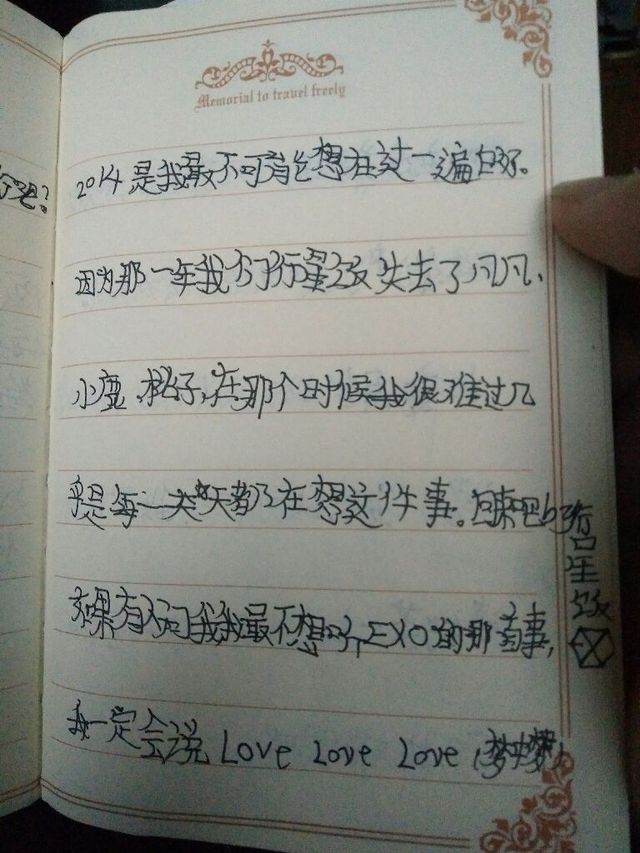 Memorial to travel freely
行吧?
2014是我最不可能想在过一遍的。
因为那一年我们行星饭失去了凡凡、
小鹿、桃子,在那个时候我很难过几
乎是每一天天都在想这件事。回来吧
行星饭
如果有人问我我最不想听EXO的那首事,
我一定会说 Love Love Love (梦中梦)